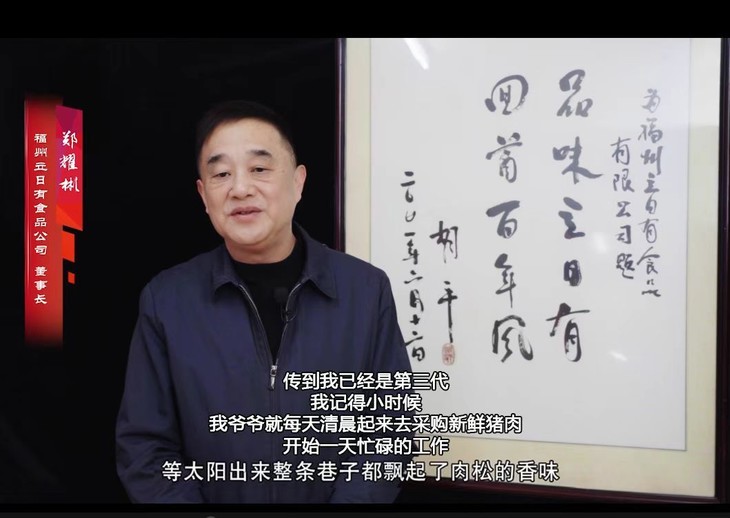 郑耀彬
福州立日有食品公司 董事长
为福州立日有食品
有限公司题
品味立日有
回首百年风
胡平
二〇〇一年六月十六日
传到我已经是第三代
我记得小时候
我爷爷就每天清晨起来去采购新鲜猪肉
开始一天忙碌的工作
等太阳出来整条巷子都飘起了肉松的香味